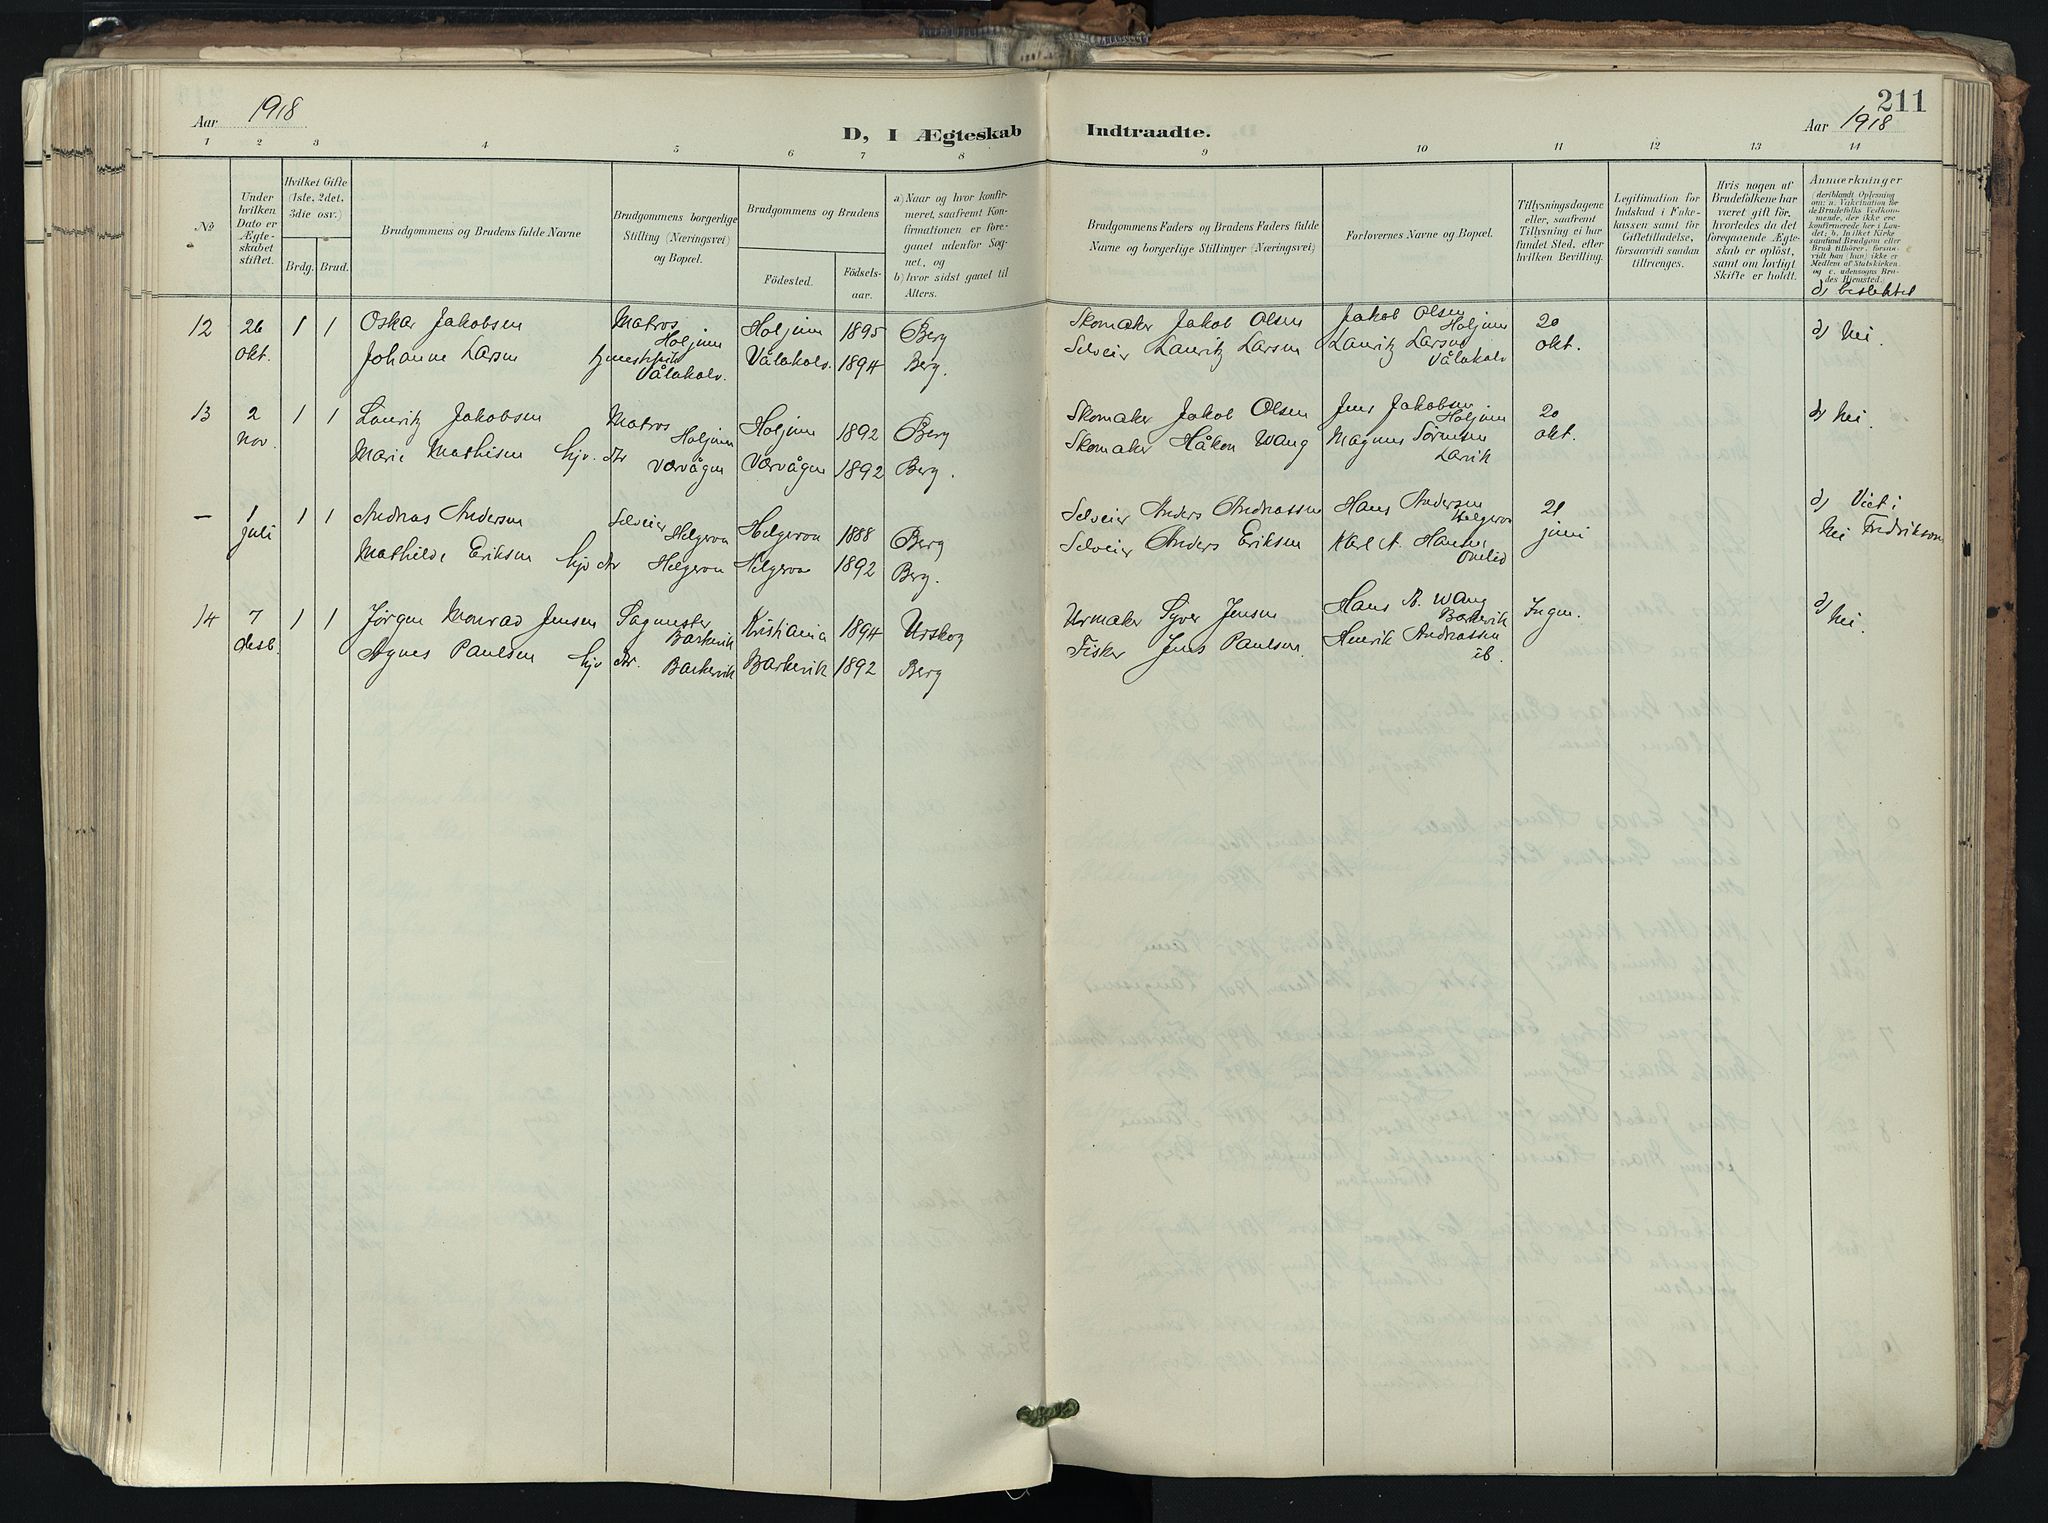 211
Aar 1918
D, I Ægteskab Indtraadte.
Aar 1918
1 2 3 4 5 6 7 8 9 10 11 12 13 14
№
Under hvilken Dato er Ægteskabet stiftet.
Hvilket Gifte (1ste, 2det, 3die osv.)
Brdg. Brud.
Brudgommens og Brudens fulde Navne
Brudgommens borgerlige Stilling (Næringsvei) og Bopæl.
Brudgommens og Brudens
Fødested. Fødselsaar.
a) Naar og hvor konfirmeret, saafremt Konfirmationen er foregaaet udenfor Sognet, og
b) hvor sidst gaaet til Alters.
Brudgommens Faders og Brudens Faders fulde Navne og borgerlige Stillinger (Næringsvei)
Forlovernes Navne og Bopæl.
Tillysningsdagene eller, saafremt Tillysning ei har fundet Sted, efter hvilken Bevilling.
Legitimation for Indskud i Enkekassen samt for Giftetilladelse, forsaavidt saadan tiltrænges.
Hvis nogen af Brudefolkene har været gift før, hvorledes da det foregaaende Ægteskab er opløst, samt om lovligt Skifte er holdt.
Anmærkninger (deriblandt Oplysning om: a. Vakcination for de Brudefolks Vedkommende, der ikke ere konfirmerede her i Landet; b. hvilket Kirkesamfund Brudgom eller Brud tilhører, forsaavidt han (hun) ikke er Medlem af Statskirken, og c. udensogns Brudes Hjemsted.)
d) beslektet
12 26 1 1 Oskar Jakobsen Matros Holjum Holjum 1895 Berg Skomaker Jakob Olsen Jakob Olsen Holjum 20 d) Nei.
okt. Johanne Larsen Vålakolv. Vålakolv. 1894 Berg. Selveier Lauritz Larsen Lauritz Larsen Vålakolv okt.
13 2 1 1 Lauritz Jakobsen Matros Holjum Holjum 1892 Berg Skomaker Jakob Olsen Jens Jakobsen Holjum 20 d) Nei.
nov. Marie Mathisen hjv. dtr Værvågen Værvågen 1892 Berg. Skomaker Håkon Wang Magnus Sørensen Larvik okt.
— 1 1 1 Andreas Andersen Selveier Helgeroa Helgeroa 1888 Berg Selveier Anders Andreassen Hans Andersen Helgeroa 21 d) Viet i
juli Mathilde Eriksen hjv dtr Helgeroa Helgeroa 1892 Berg. Selveier Anders Eriksen Karl A. Hansen juni Nei Fredriksvern
14 7 1 1 Jørgen Monrad Jensen Sagmester Barkevik Kristiania 1894 Urskog Urmaker Syver Jensen Hans A. Wang Barkevik Ingen. d) Nei.
desb. Agnes Paulsen hjv dtr. Barkevik Barkevik 1892 Berg Fisker Jens Paulsen Henrik Andreassen ib.